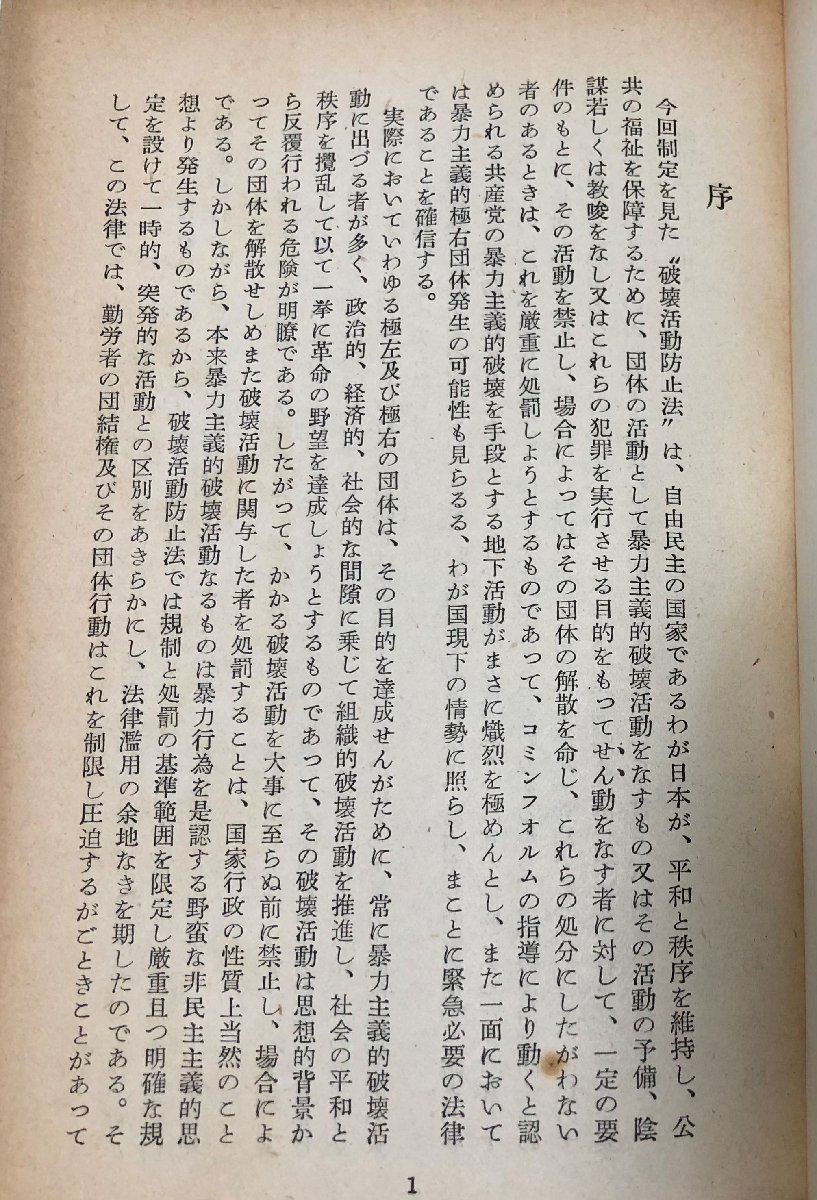 序
今回制定を見た〝破壊活動防止法〟は、自由民主の国家であるわが日本が、平和と秩序を維持し、公
共の福祉を保障するために、団体の活動として暴力主義的破壊活動をなすもの又はその活動の予備、陰
謀若しくは教唆をなし又はこれらの犯罪を実行させる目的をもってせん動をなす者に対して、一定の要
件のもとに、その活動を禁止し、場合によってはその団体の解散を命じ、これらの処分にしたがわない
者のあるときは、これを厳重に処罰しようとするものであって、コミンフオルムの指導により動くと認
められる共産党の暴力主義的破壊を手段とする地下活動がまさに熾烈を極めんとし、また一面において
は暴力主義的極右団体発生の可能性も見らるる、わが国現下の情勢に照らし、まことに緊急必要の法律
であることを確信する。
実際においていわゆる極左及び極右の団体は、その目的を達成せんがために、常に暴力主義的破壊活
動に出づる者が多く、政治的、経済的、社会的な間隙に乗じて組織的破壊活動を推進し、社会の平和と
秩序を攪乱して以て一挙に革命の野望を達成しょうとするものであつて、その破壊活動は思想的背景か
ら反覆行われる危険が明瞭である。したがって、かかる破壊活動を大事に至らぬ前に禁止し、場合によ
ってその団体を解散せしめまた破壊活動に関与した者を処罰することは、国家行政の性質上当然のこと
である。しかしながら、本来暴力主義的破壊活動なるものは暴力行為を是認する野蛮な非民主主義的思
想より発生するものであるから、破壊活動防止法では規制と処罰の基準範囲を限定し厳重且つ明確な規
定を設けて一時的、突発的な活動との区別をあきらかにし、法律濫用の余地なきを期したのである。そ
して、この法律では、勤労者の団結権及びその団体行動はこれを制限し圧迫するがごときことがあって
1